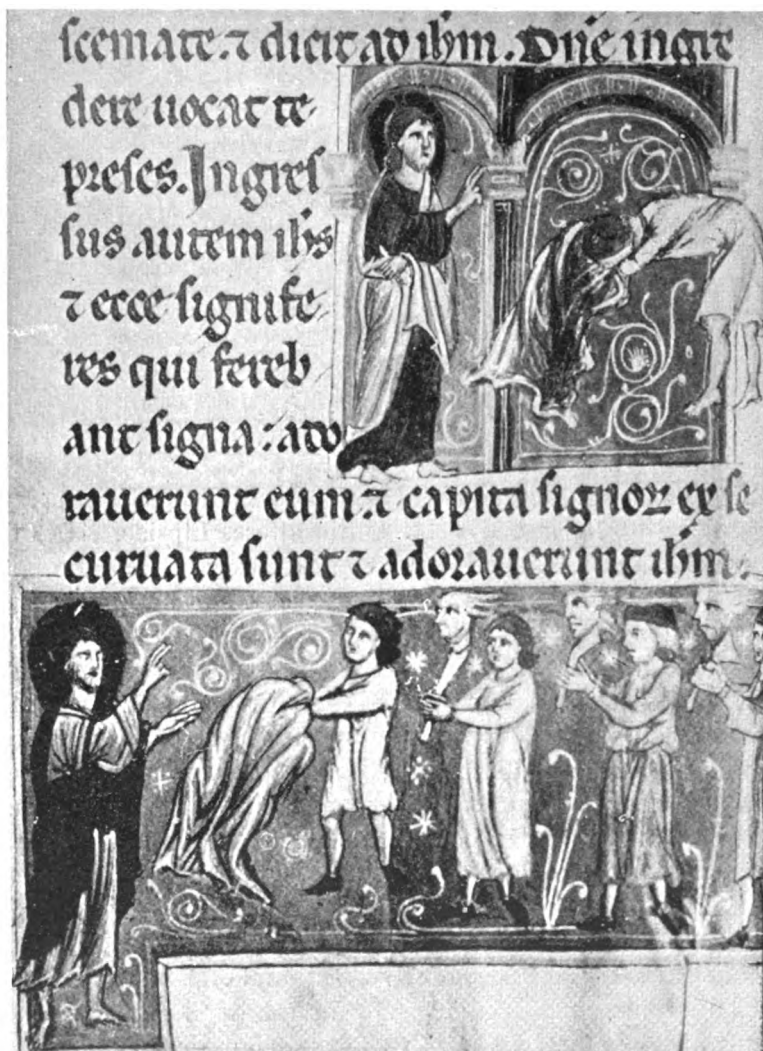 scemate. ⁊ dicit ad ih̅m. Dn̅e ingre
dere uocat te
preses. Ingres
sus autem ih̅s
⁊ ecce signife
res qui fereb
ant signa : ado
rauerunt eum ⁊ capita signoꝝ ex se
curuata sunt ⁊ adorauerunt ih̅m.